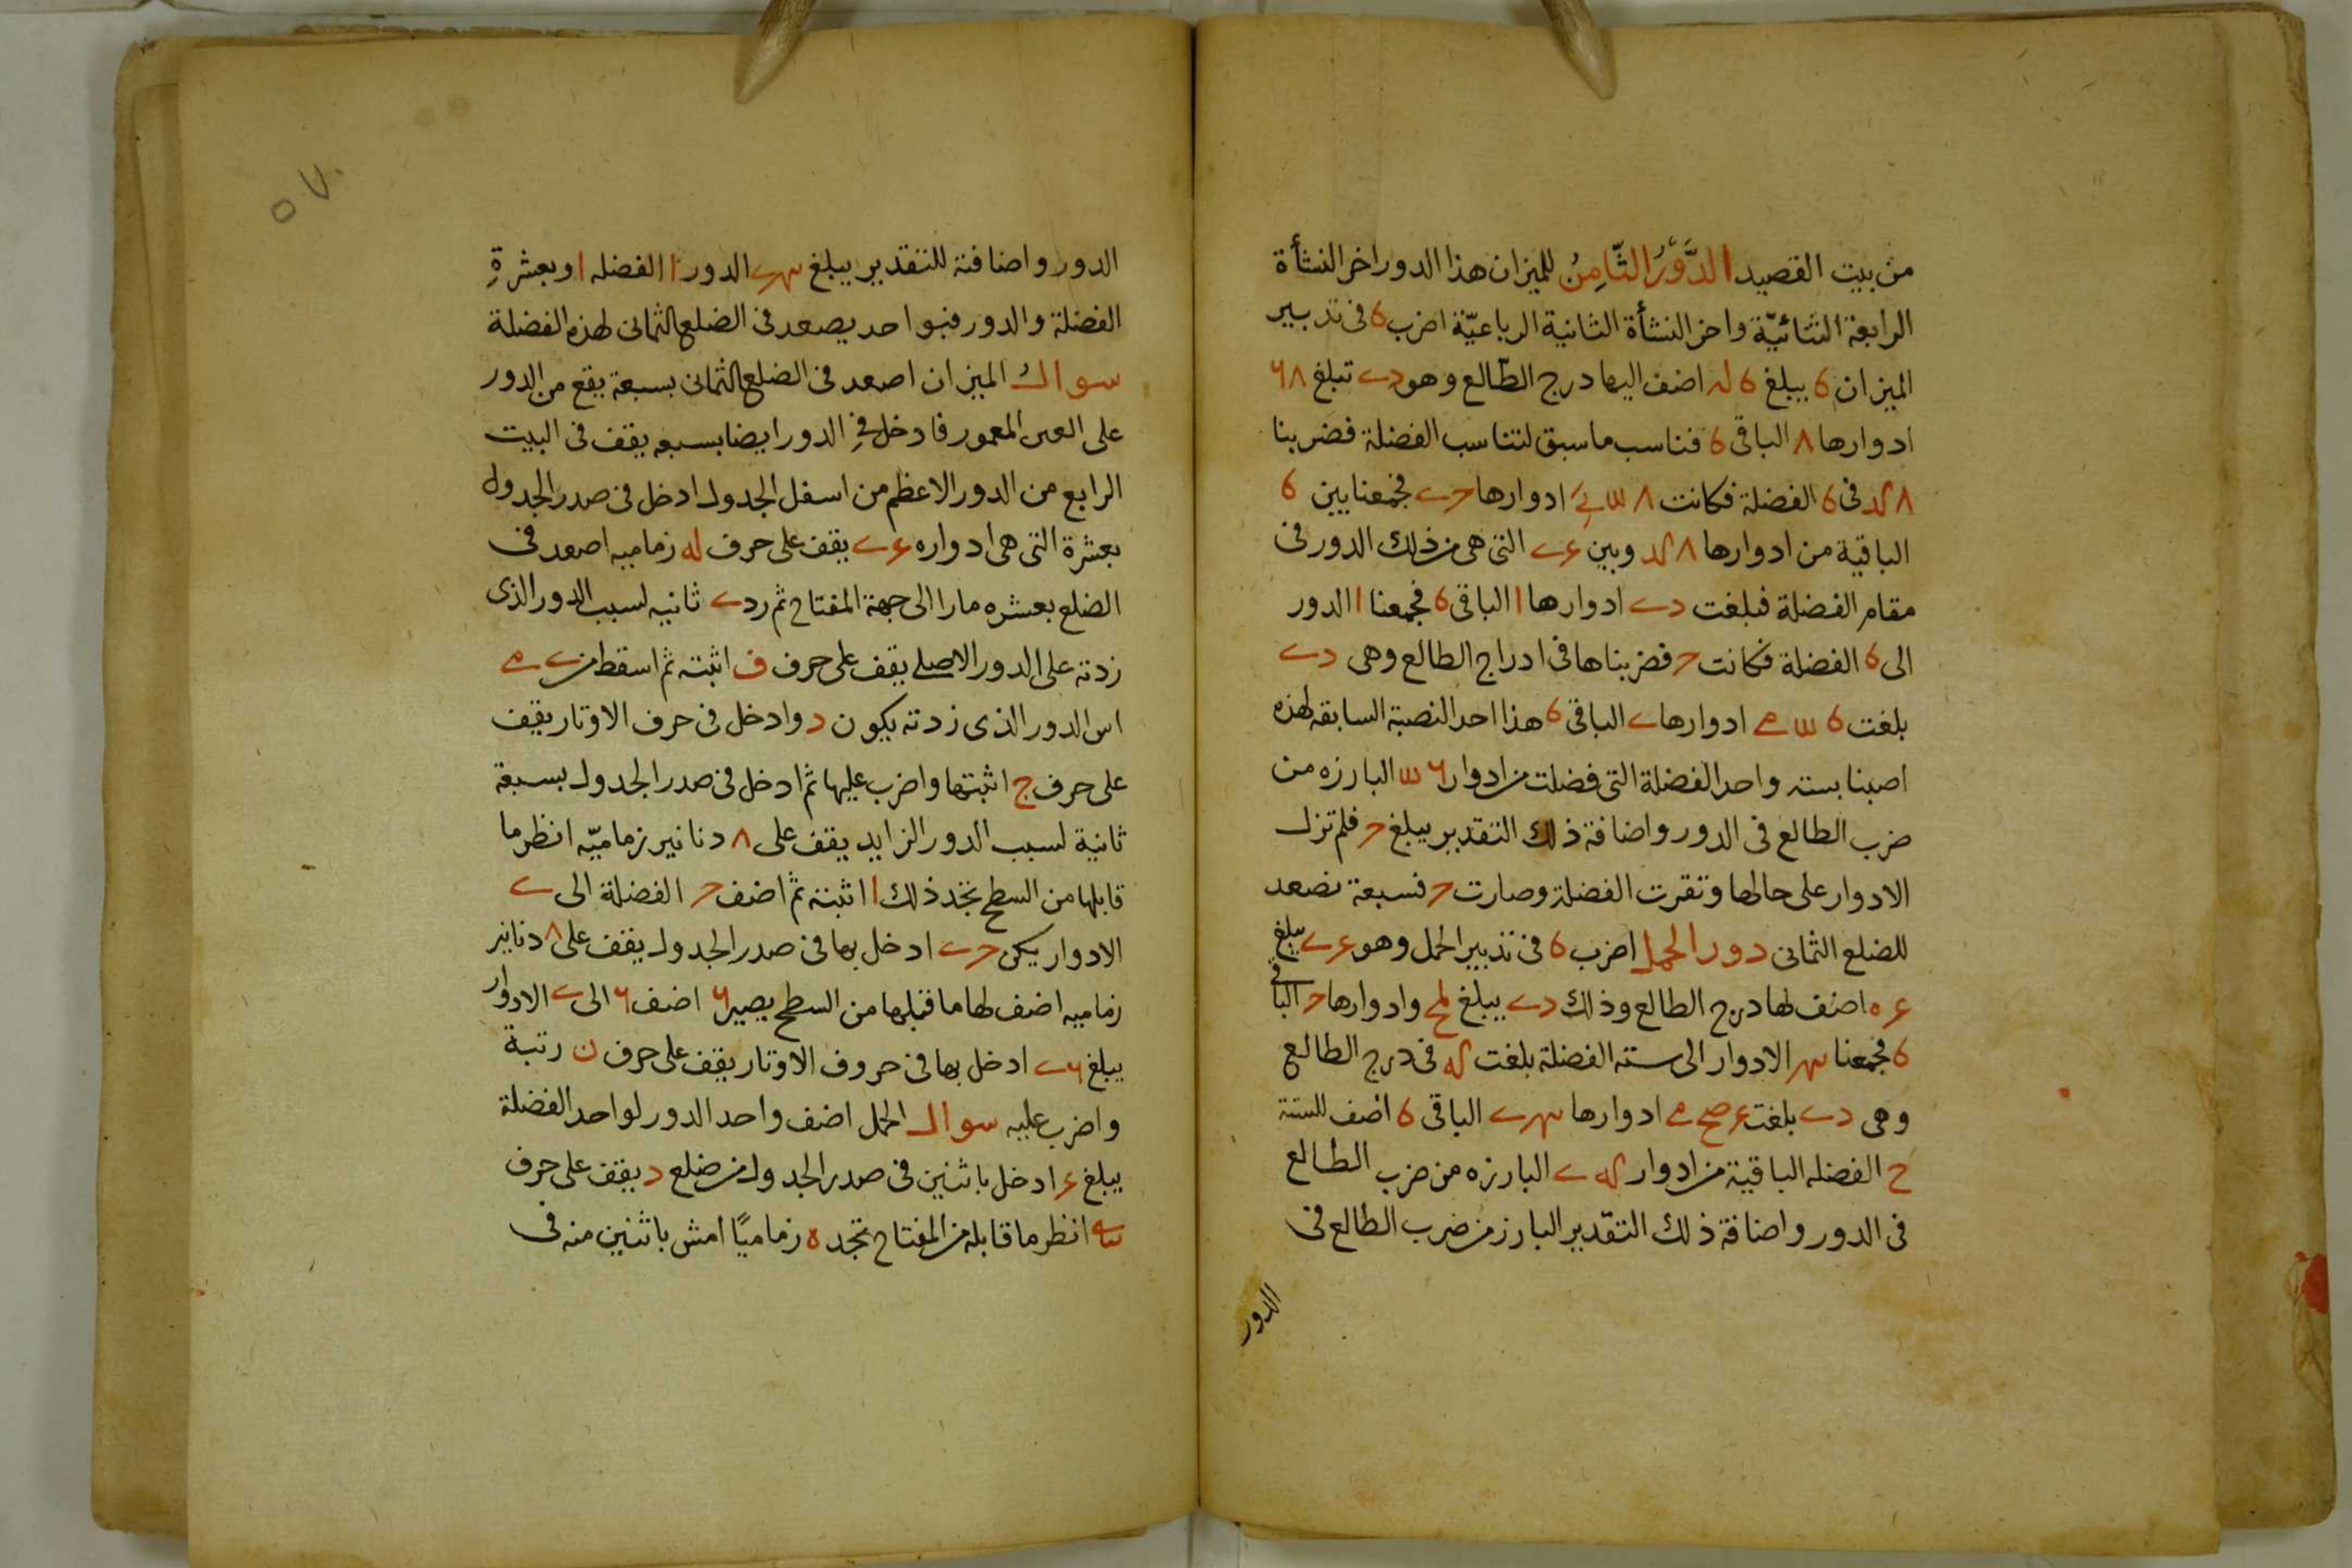 من بيت القصيد الدَّوْرُ الثَّامِنُ للميزان هذا الدور اخر النشأة
الرابعة الثنائيّة واخر النشأة الثانية الرباعيّة اضرب 6 فى تدبير
الميزان 6 يبلغ 6 له اضف اليها درج الطّالع وهو تبلغ
ادوارها ٨ الباقى 6 فناسب ما سبق لتناسب الفضلة فضربنا
٨ فى 6 الفضلة فكانت ٨ ادوارها فجمعنا بين 6
الباقية من ادوارها ٨ وبين التى هى من ذلك الدور فى
مقام الفضلة فبلغت ادوارها ا الباقى 6 فجمعنا ا الدور
الى 6 الفضلة فكانت فضربناها فى ادراج الطالع وهى
بلغت 6 ادوارها الباقى 6 هذا احد النصبة السابقه لهذه
اصبنا بسته واحد الفضلة التى فضلت من ادوار البارزه من
ضرب الطالع فى الدور واضافة ذلك التقدير يبلغ فلم تزل
الادوار على حالها وتقرت الفضلة وصارت فسبعة نصعد
للضلع الثمانى دور الحمل اضرب 6 فى تدبير الحمل وهو يبلغ
اضف لها درج الطالع وذلك يبلغ وادوارها الباقى
6 فجمعنا الادوار الى سته الفضلة بلغت فى درج الطالع
وهى بلغت ادوارها الباقى 6 اضف للستة
ح الفضله الباقية من ادوار البارزه من ضرب الطالع
فى الدور واضافة ذلك التقدير البارز من ضرب الطالع فى
الدور
٥٧
الدور واضافته للتقدير يبلغ الدور ا الفضله ا وبعشرةِ
الفضلة والدور فبواحد يصعد فى الضلع الثمانى لهذه الفضلة
سوال الميزان اصعد فى الضلع الثمانى بسبعة يقع من الدور
على المعمور فادخل فى الدور ايضا بسبعه يقف فى البيت
الرابع من الدور الاعظم من اسفل الجدول ادخل فى صدر الجدول
بعشرة التى هى ادواره يقف على حرف له زماميه اصعد فى
الضلع بعشره مارا الى جهة المفتاح ثم رد ثانيه لسبب الدور الذى
زدته على الدور الاصلى يقف على حرف ف اثبته ثم اسقط من
اس الدور الذى زدته يكون د وادخل فى حرف الاوتار يقف
على حرف ج اثبتها واضرب عليها ثم ادخل فى صدر الجدول بسبعة
ثانية لسبب الدور الزايد يقف على ٨ دنانير زماميّه انظر ما
قابلها من السطح تجد ذلك ا اثبته ثم اضف الفضلة الى
الادوار يكن ادخل بها فى صدر الجدول يقف على ٨ دنانير
زماميه اضف لها ما قبلها من السطح يصير اضف الى الادوار
يبلغ ادخل بها فى حروف الاوتار يقف على حرف ن رتبة
واضرب عليه سوال الحمل اضف واحد الدور لواحد الفضلة
يبلغ ادخل باثنين فى صدر الجدول من ضلع د يقف على حرف
انظر ما قابله من المفتاح تجده ه زماميًا امش باثنين منه فى